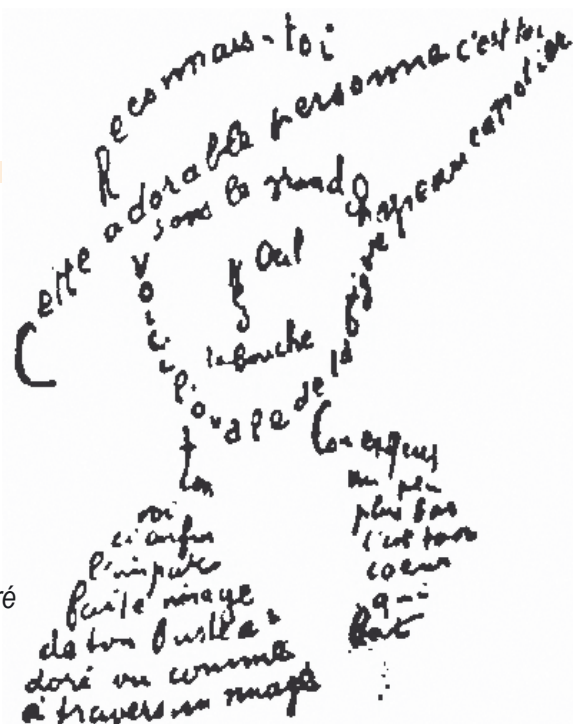 Reconnais-toi
Cette adorable personne c'est toi
sous le grand chapeau canotier
Oeil
la bouche
Voici l'ovale de ta figure
ton
Cou exquis
voi
ci enfin
l'impar
faite image
de ton buste a
doré vu comme
à travers un nuage
un peu
plus bas
c'est ton
coeur
qui
bat
ré